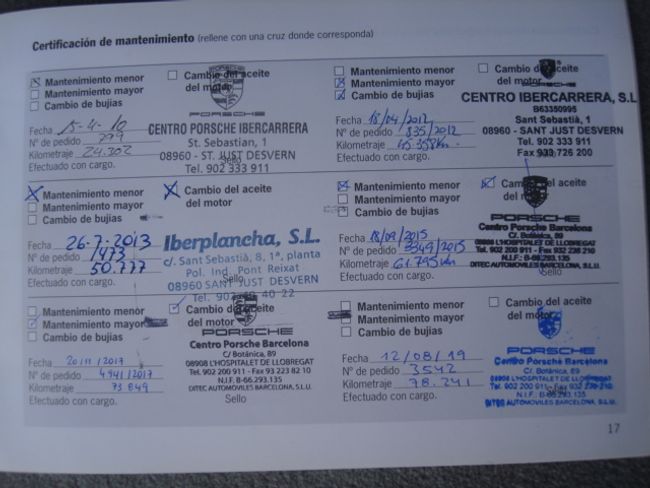 Certificación de mantenimiento (rellene con una cruz donde corresponda)
Mantenimiento menor
Mantenimiento mayor
Cambio de bujias
Cambio del aceite
del motor
PORSCHE
Fecha 15-4-10
Nº de pedido 799
Kilometraje 24.202
Efectuado con cargo.
CENTRO PORSCHE IBERCARRERA
St. Sebastian, 1
08960 - ST. JUST DESVERN
Sello
Tel. 902 333 911
Mantenimiento menor
Mantenimiento mayor
Cambio de bujias
Cambio del aceite
del motor
Fecha 18/04/2012
Nº de pedido 835/2012
Kilometraje 45.358km
Efectuado con cargo.
CENTRO IBERCARRERA, S.L.
B63350995
Sant Sebastià, 1
08960 - SANT JUST DESVERN
Tel. 902 333 911
Fax 933 726 200
Sello
Mantenimiento menor
Mantenimiento mayor
Cambio de bujias
Cambio del aceite
del motor
Fecha 26-7-2013
Nº de pedido 1473
Kilometraje 50.777
Efectuado con cargo.
Iberplancha, S.L.
c/. Sant Sebastià, 8, 1ª, planta
Pol. Ind. Pont Reixat
Sello
08960 SANT JUST DESVERN
Tel. 902 40 22
Mantenimiento menor
Mantenimiento mayor
Cambio de bujias
Cambio del aceite
del motor
PORSCHE
Fecha 18/09/2015
Nº de pedido 3349/2015
Kilometraje 61.795km
Efectuado con cargo.
Centro Porsche Barcelona
C/. Botánica, 89
08908 L'HOSPITALET DE LLOBREGAT
Tel. 902 200 911 - Fax 93 223 82 10
N.I.F. B-66.293.135
DITEC AUTOMOVILES BARCELONA, S.L.U.
Sello
Mantenimiento menor
Mantenimiento mayor
Cambio de bujias
Cambio del aceite
del motor
PORSCHE
Fecha 20/11/2017
Nº de pedido 4941/2017
Kilometraje 73 849
Efectuado con cargo.
Centro Porsche Barcelona
C/ Botánica, 89
08908 L'HOSPITALET DE LLOBREGAT
Tel. 902 200 911 - Fax 93 223 82 10
N.I.F. B-66.293.135
DITEC AUTOMOVILES BARCELONA, S.L.U.
Sello
Mantenimiento menor
Mantenimiento mayor
Cambio de bujias
Cambio del aceite
del motor
PORSCHE
Fecha 12/08/19
Nº de pedido 3542
Kilometraje 78.241
Efectuado con cargo.
Centro Porsche Barcelona
C/. Botánica, 89
08908 L'HOSPITALET DE LLOBREGAT
Tel. 902 200 911 - Fax 93
N.I.F. B-66.293.135
DITEC AUTOMOVILES BARCELONA, S.L.U.
Sello
17